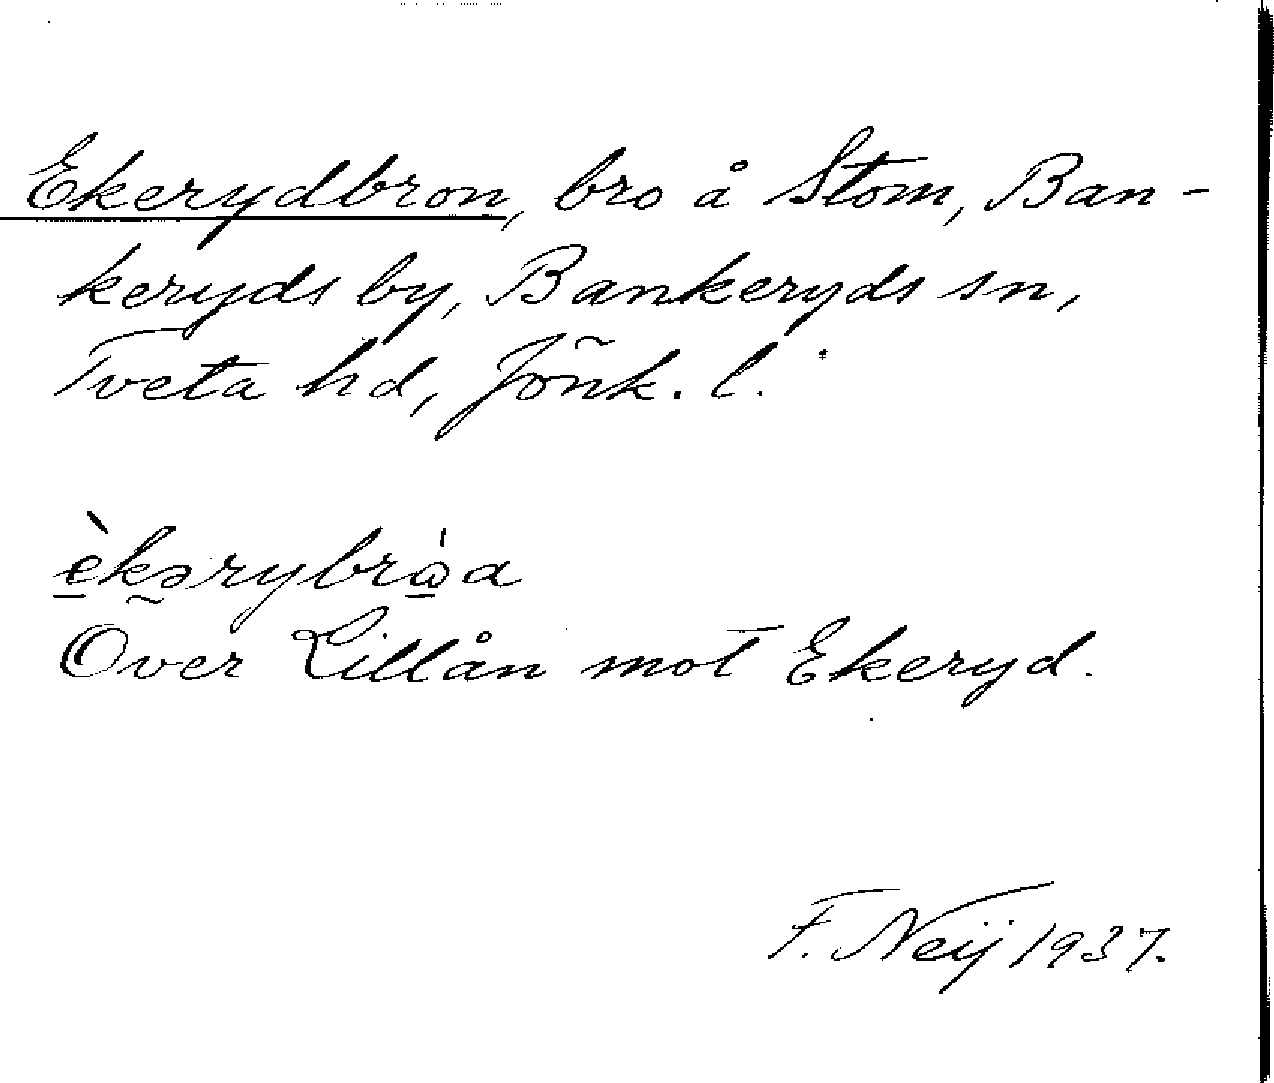 Ekerydbron, bro å Stom, Ban-
keryds by, Bankeryds sn,
Tveta hd, Jönk. l.
èkərybrὼa
Över Lillån mot Ekeryd.
F. Neij 1937.